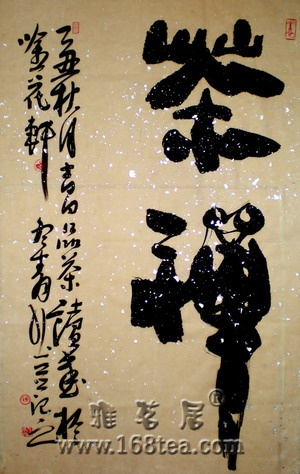 茶禪
乙丑秋月吉日品茶讀畫於
吟花軒 冬青 記之
雅茗居®
www.168tea.com